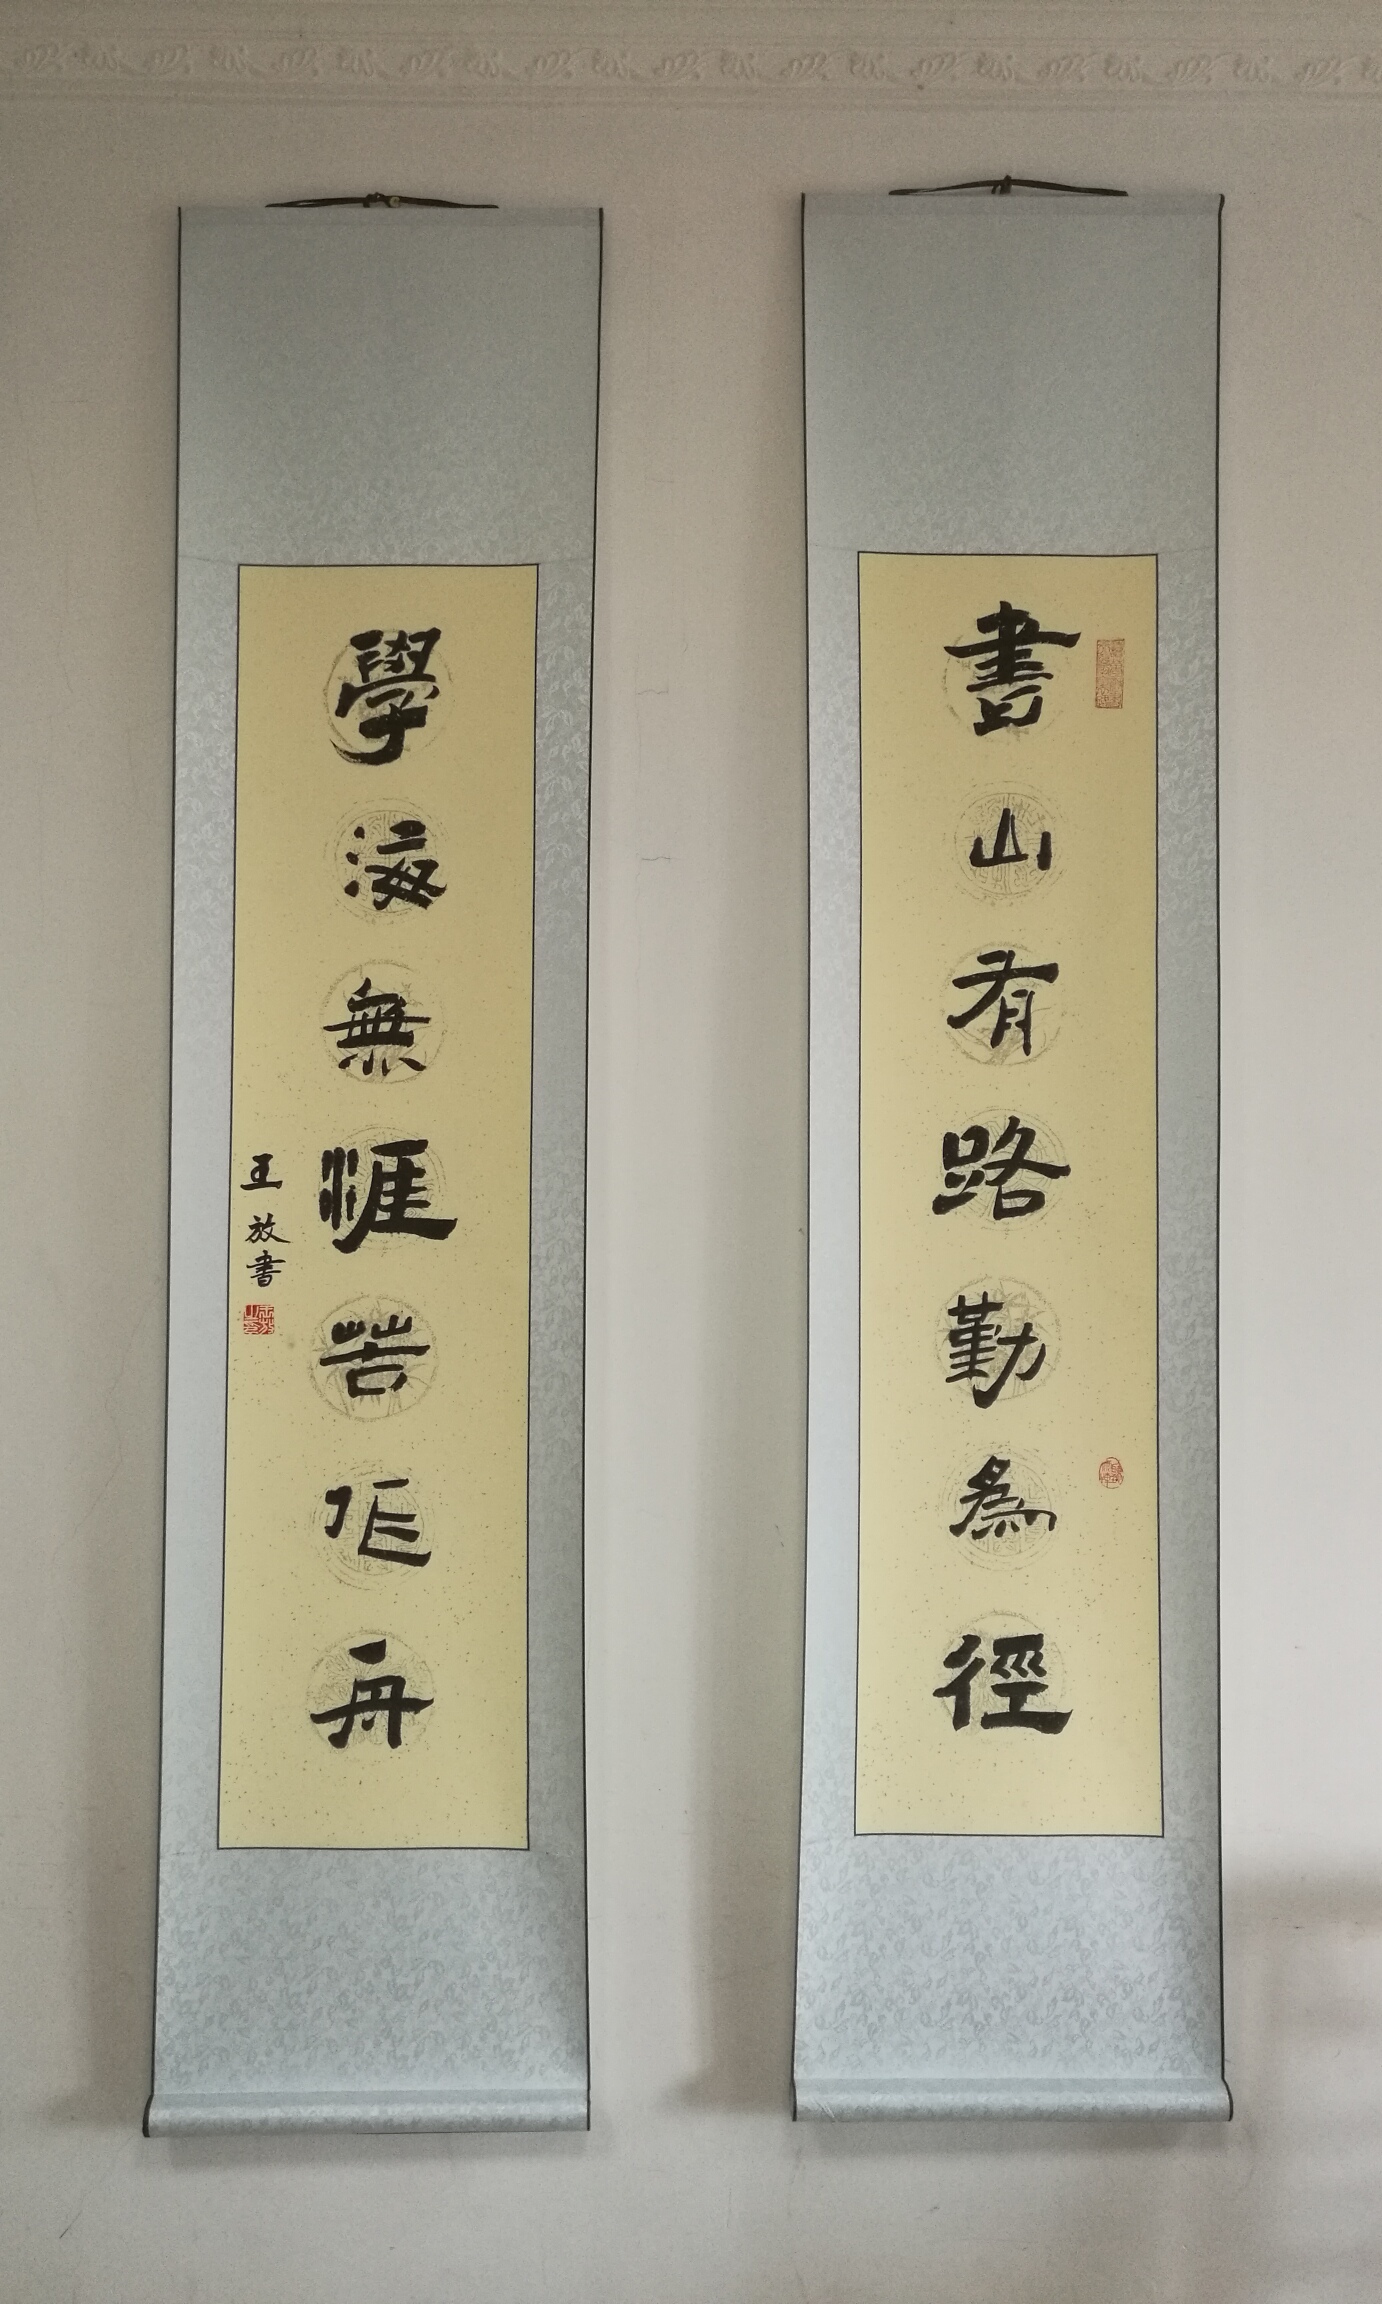 書山有路勤為徑
學海無涯苦作舟
王放書